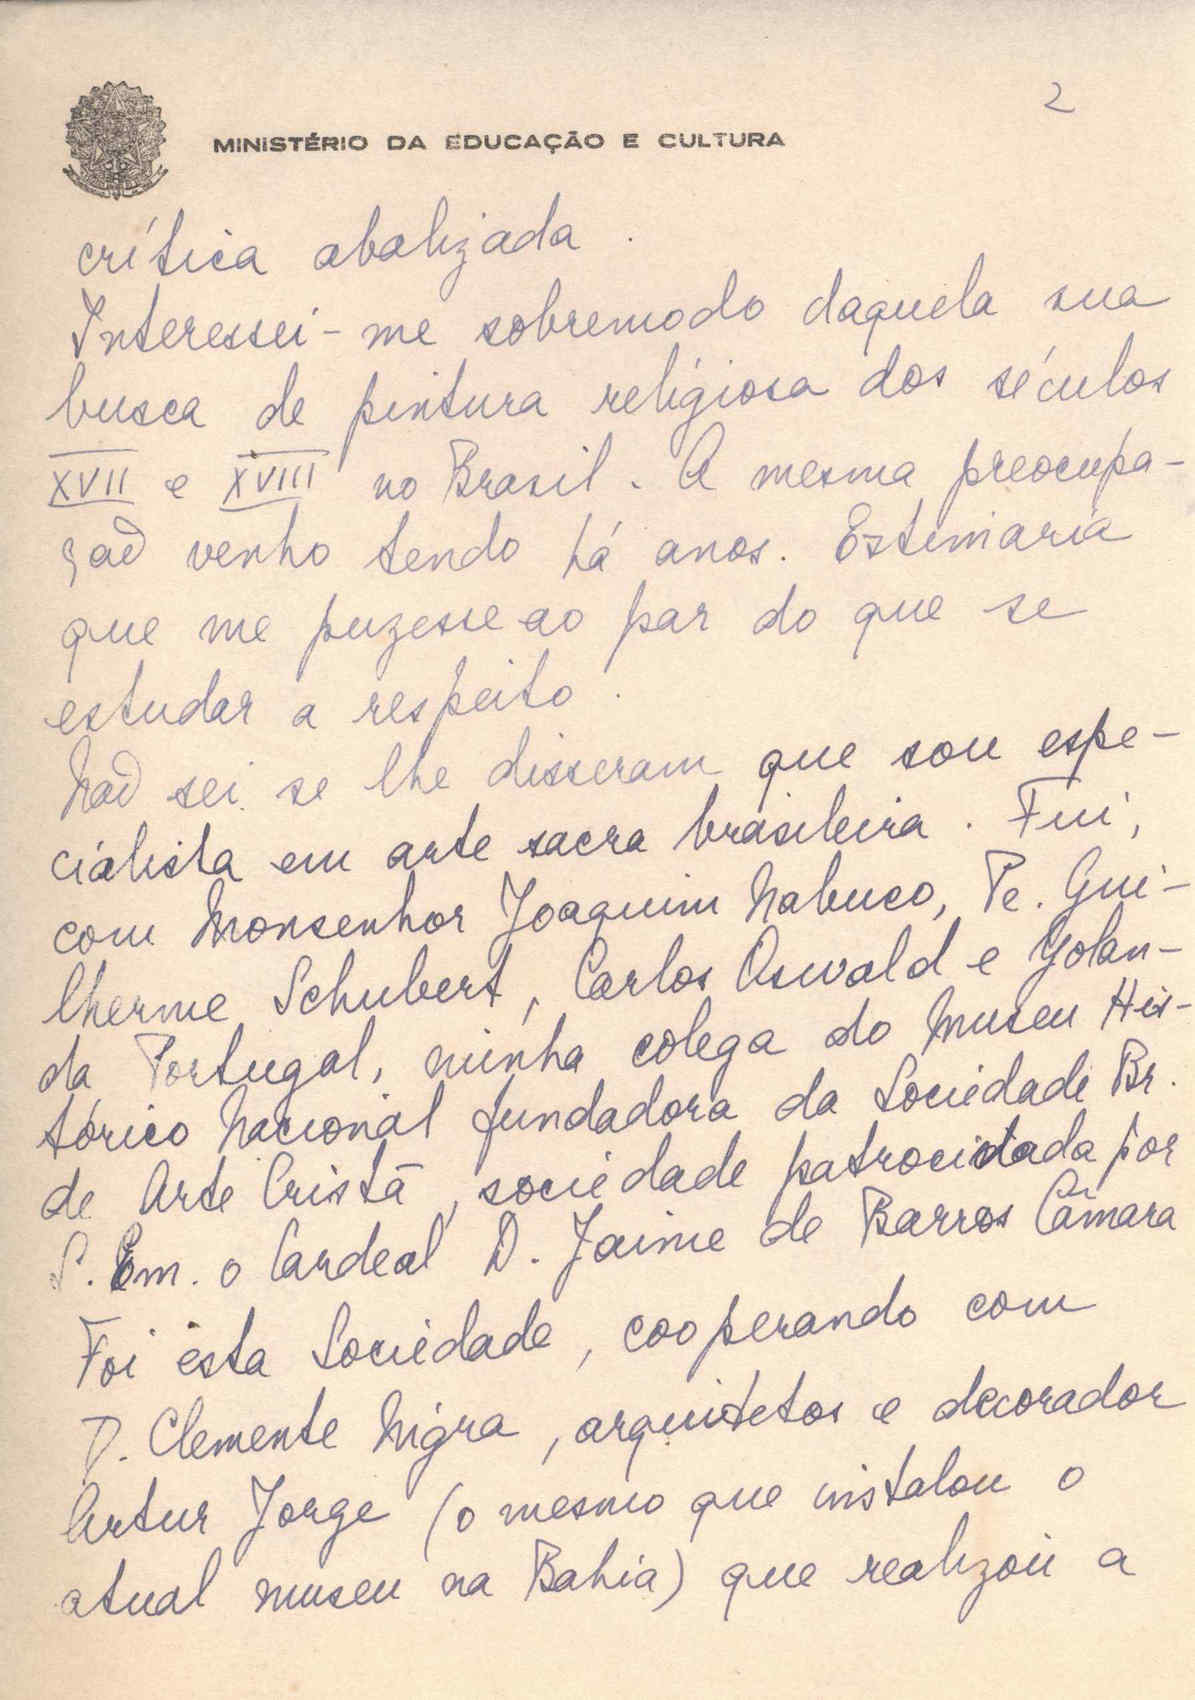 2
MINISTÉRIO DA EDUCAÇÃO E CULTURA
crítica abalizada.
Interessei-me sobremodo daquela sua
busca de pintura religiosa dos séculos
XVII e XVIII no Brasil. A mesma preocupa-
ção venho tendo há anos. Estimaria
que me puzesse ao par do que se
estudar a respeito.
Não sei se lhe disseram que sou espe-
cialista em arte sacra brasileira. Fui,
com Monsenhor Joaquim Nabuco, Pe. Gui-
lherme Schubert, Carlos Oswald e Yolan-
da Portugal, minha colega do Museu His-
tórico Nacional fundadora da Sociedade Br.
de Arte Cristã, sociedade patrocidada por
S. Em. o Cardeal D. Jaime de Barros Câmara
Foi esta Sociedade, cooperando com
D. Clemente Nigra, arquitetos e decorador
Artur Jorge (o mesmo que instalou o
atual museu na Bahia) que realizou a